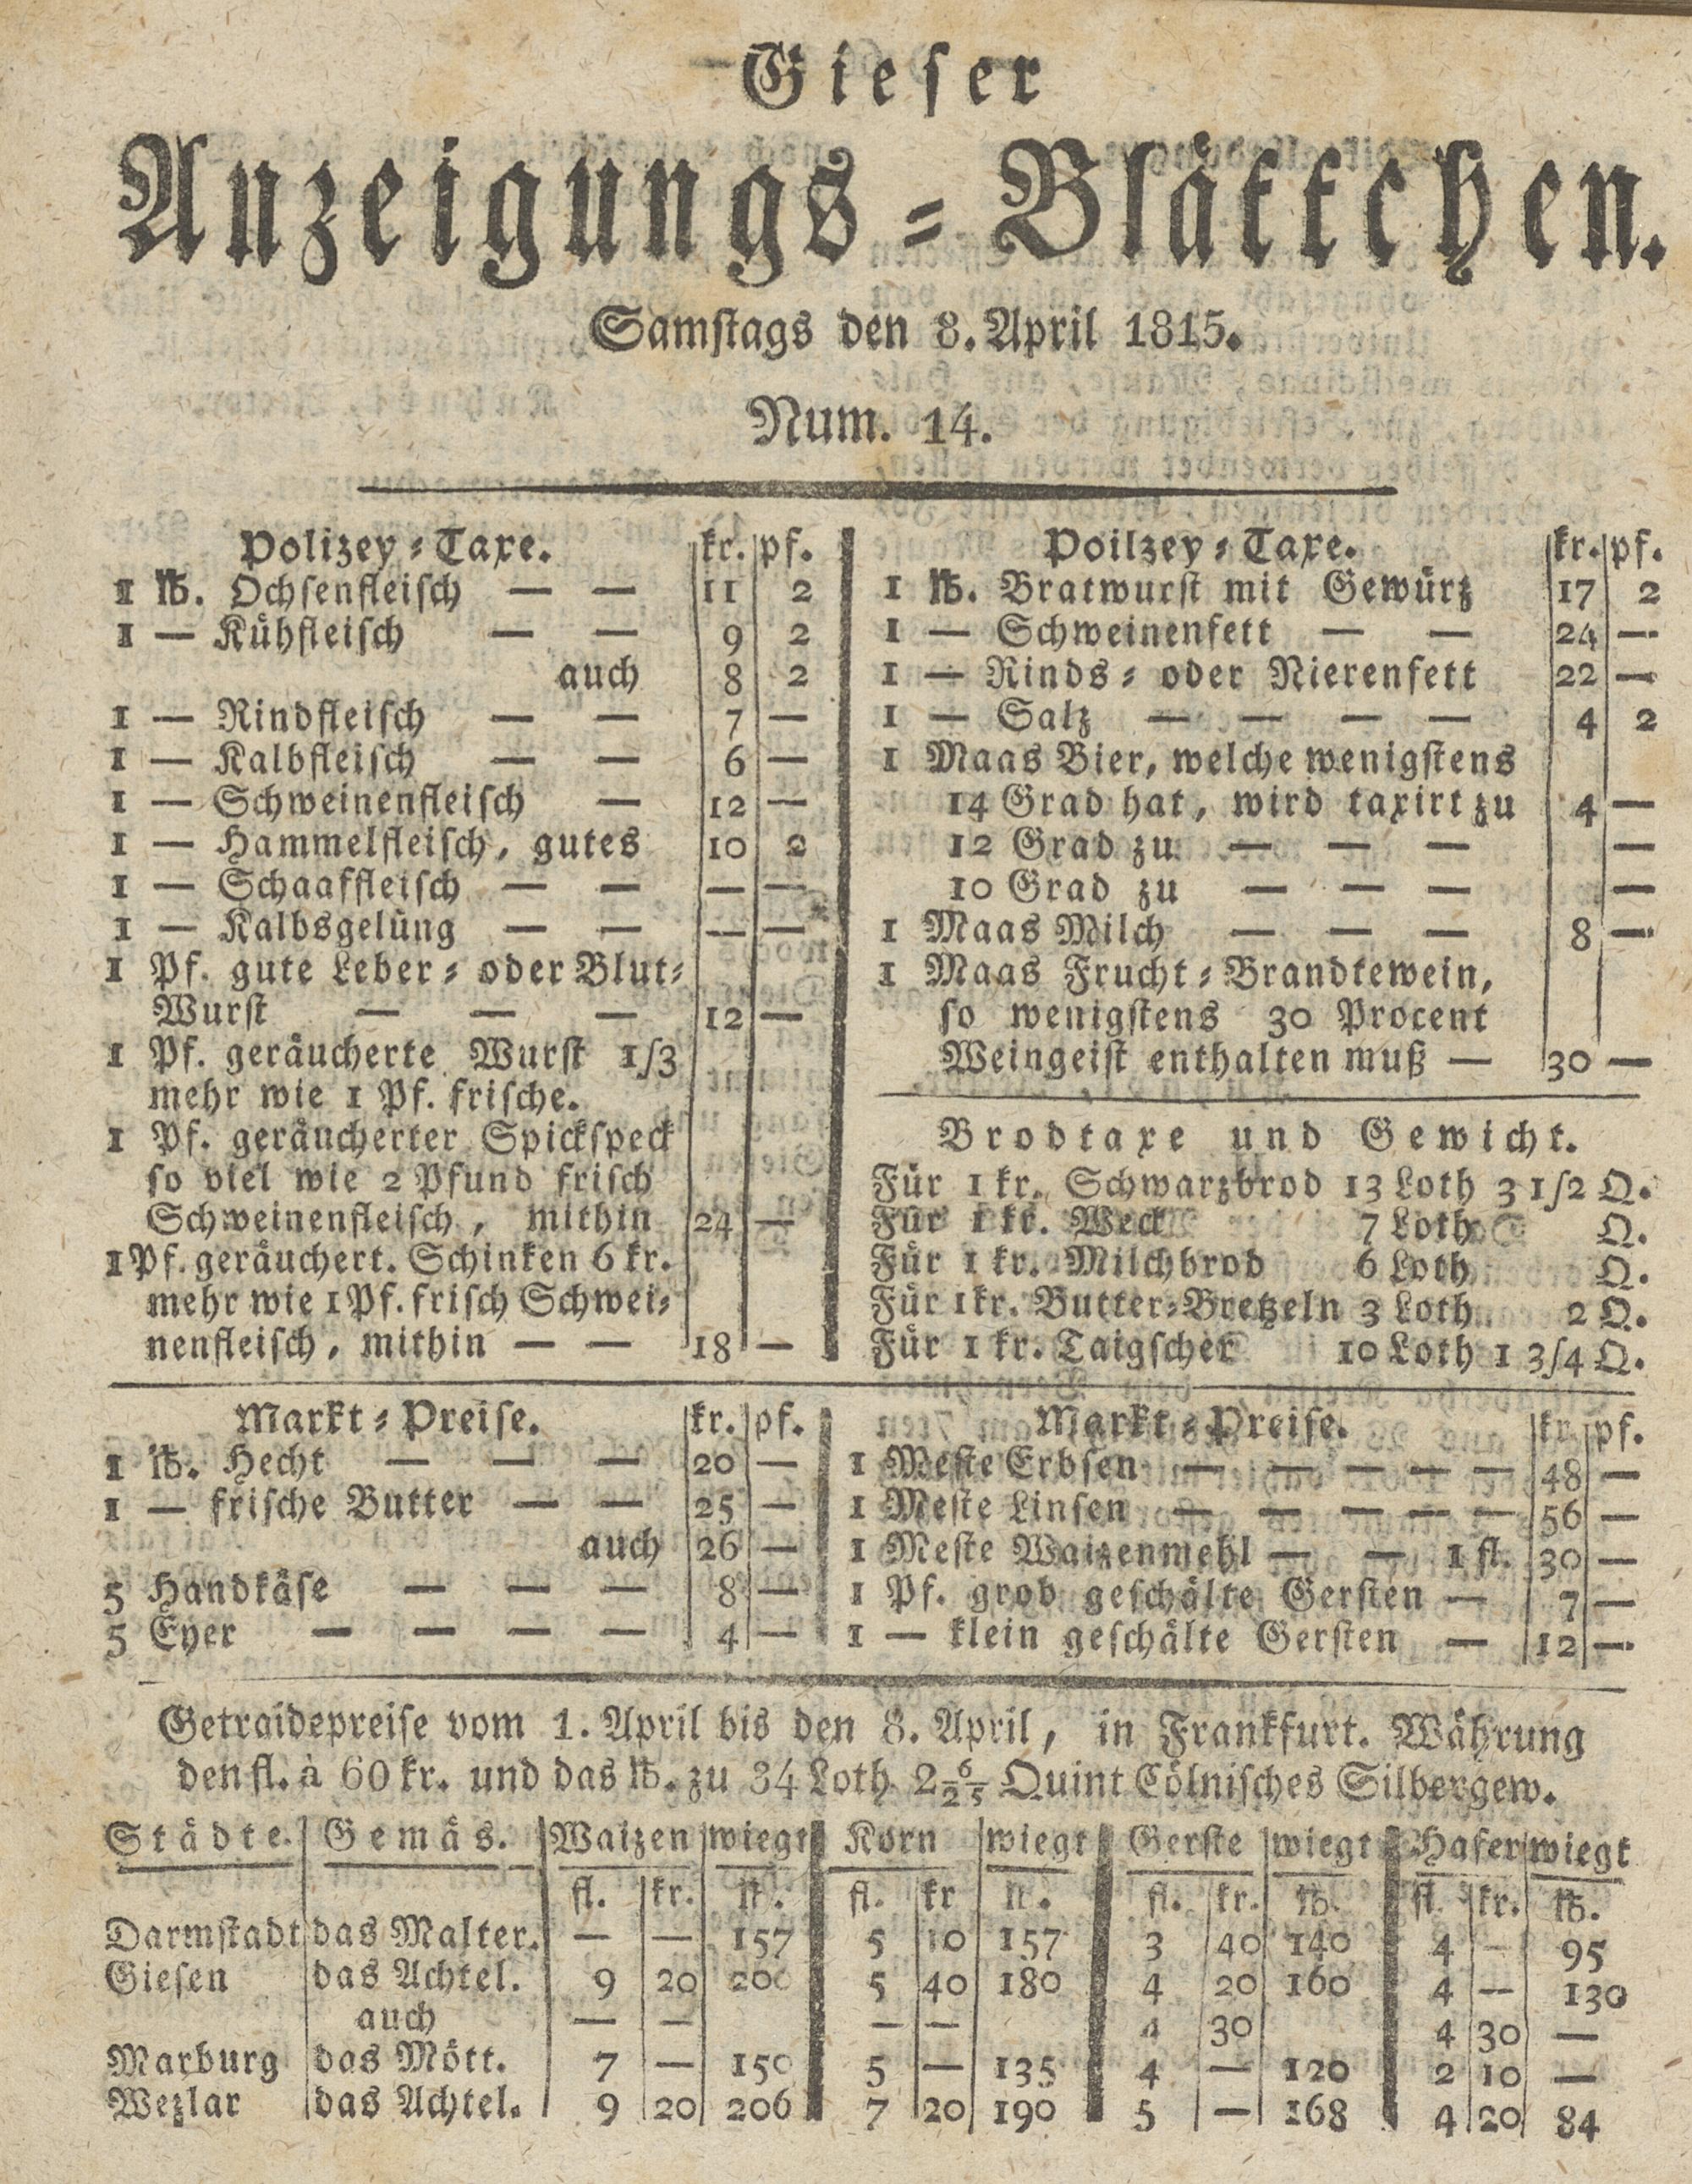 Gieser
Anzeigungs-Blättchen.
Samstags den 8. April 1815.
Num. 14.
Polizey-Taxe. kr. pf.
1 ℔. Ochsenfleisch — — 11 2
1 — Kühfleisch — — 9 2
auch 8 2
1 — Rindfleisch — — 7 —
1 — Kalbfleisch — — 6 —
1 — Schweinenfleisch — 12 —
1 — Hammelfleisch, gutes 10 2
1 — Schaaffleisch — — — —
1 — Kalbsgelüng — — — —
1 Pf. gute Leber- oder Blut-
Wurst — — — 12 —
1 Pf. geräucherte Wurst 1/3
mehr wie 1 Pf. frische.
1 Pf. geräucherter Spickspeck
so viel wie 2 Pfund frisch
Schweinenfleisch, mithin 24 —
1 Pf. geräuchert. Schinken 6 kr.
mehr wie 1 Pf. frisch Schwei-
nenfleisch, mithin — — 18 —
Poilzey-Taxe. kr. pf.
1 ℔. Bratwurst mit Gewürz 17 2
1 — Schweinenfett — — 24 —
1 — Rinds- oder Nierenfett 22 —
1 — Salz — — — — 4 2
1 Maas Bier, welche wenigstens
14 Grad hat, wird taxirt zu 4 —
12 Grad zu — — — —
10 Grad zu — — — —
1 Maas Milch — — — 8 —
1 Maas Frucht-Brandtewein,
so wenigstens 30 Procent
Weingeist enthalten muß — 30 —
Brodtaxe und Gewicht.
Für 1 kr. Schwarzbrod 13 Loth 3 1/2 Q.
Für 1 kr. Weck 7 Loth Q.
Für 1 kr. Milchbrod 6 Loth Q.
Für 1 kr. Butter-Bretzeln 3 Loth 2 Q.
Für 1 kr. Taigscher 10 Loth 1 3/4 Q.
Markt-Preise. kr. pf.
1 ℔. Hecht — — — 20 —
1 — frische Butter — — 25 —
auch 26 —
5 Handkäse — — — 8 —
5 Eyer — — — — 4 —
Markt-Preise. kr. pf.
1 Meste Erbsen — — — — — 48 —
1 Meste Linsen — — — — — 56 —
1 Meste Waizenmehl — — 1 fl. 30 —
1 Pf. grob geschälte Gersten — 7 —
1 — klein geschälte Gersten — 12 —
Getraidepreise vom 1. April bis den 8. April, in Frankfurt. Währung
den fl. à 60 kr. und das ℔. zu 34 Loth 2 6/25 Quint Cölnisches Silbergew.
Städte. Gemäs. Waizen wiegt Korn wiegt Gerste wiegt Hafer wiegt
fl. kr. ℔. fl. kr ℔. fl. kr. ℔. fl. kr. ℔.
Darmstadt das Malter. — — 157 5 10 157 3 40 140 4 — 95
Giesen das Achtel. 9 20 200 5 40 180 4 20 160 4 — 130
auch — — — — 4 30 4 30 —
Marburg das Mött. 7 — 150 5 — 135 4 — 120 2 10 —
Wezlar das Achtel. 9 20 206 7 20 190 5 — 168 4 20 84